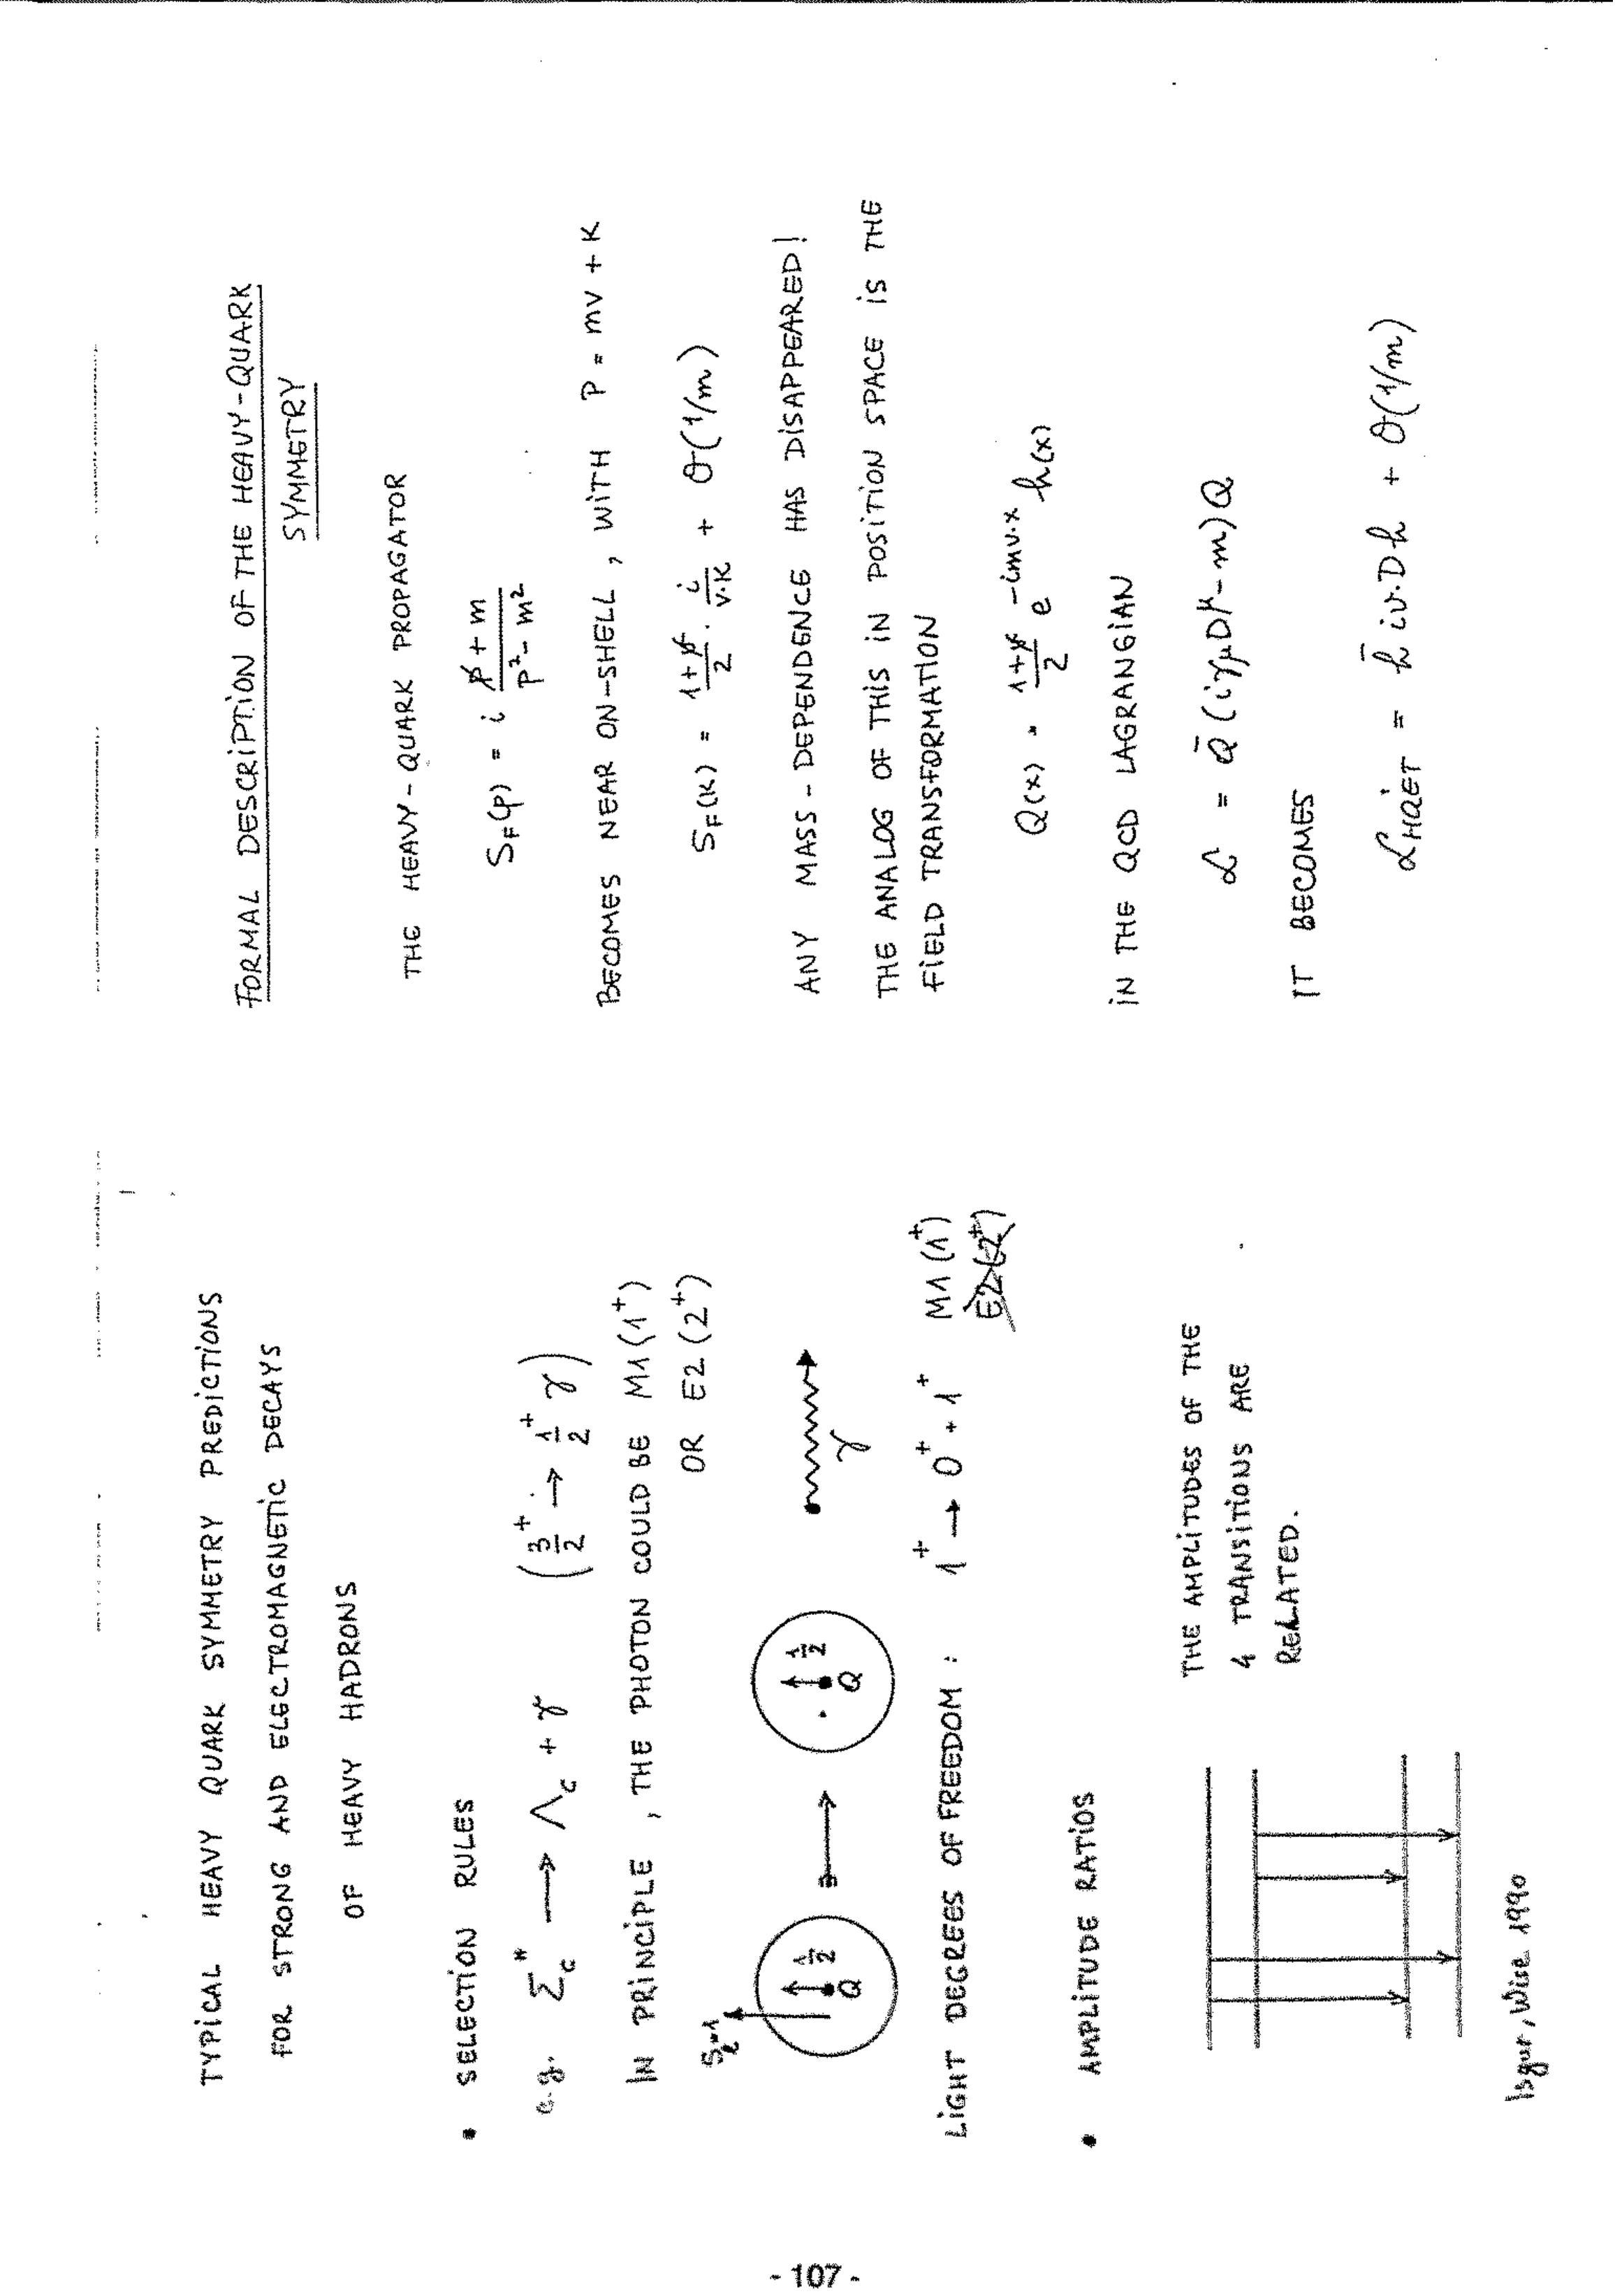 TYPICAL HEAVY QUARK SYMMETRY PREDICTIONS
FOR STRONG AND ELECTROMAGNETIC DECAYS
OF HEAVY HADRONS
• SELECTION RULES
e.g. Σc* → Λc + γ (3/2⁺ → 1/2⁺ γ)
IN PRINCIPLE, THE PHOTON COULD BE M1(1⁺)
OR E2(2⁺)
Sℓ=1
1/2
Q
1/2
Q
γ
LIGHT DEGREES OF FREEDOM: 1⁺ → 0⁺ + 1⁺ M1(1⁺)
E2(2⁺)
• AMPLITUDE RATIOS
THE AMPLITUDES OF THE
4 TRANSITIONS ARE
RELATED.
Isgur, Wise 1990
FORMAL DESCRIPTION OF THE HEAVY-QUARK
SYMMETRY
THE HEAVY-QUARK PROPAGATOR
S_F(p) = i (p̸ + m)/(p² - m²)
BECOMES NEAR ON-SHELL, WITH P = mv + K
S_F(K) = (1+v̸)/2 · i/(v·K) + O(1/m)
ANY MASS-DEPENDENCE HAS DISAPPEARED!
THE ANALOG OF THIS IN POSITION SPACE IS THE
FIELD TRANSFORMATION
Q(x) = (1+v̸)/2 e^(-imv·x) h(x)
IN THE QCD LAGRANGIAN
ℒ = Q̄(iγμD^μ - m)Q
IT BECOMES
ℒHQET = h̄ iv·Dh + O(1/m)
- 107 -